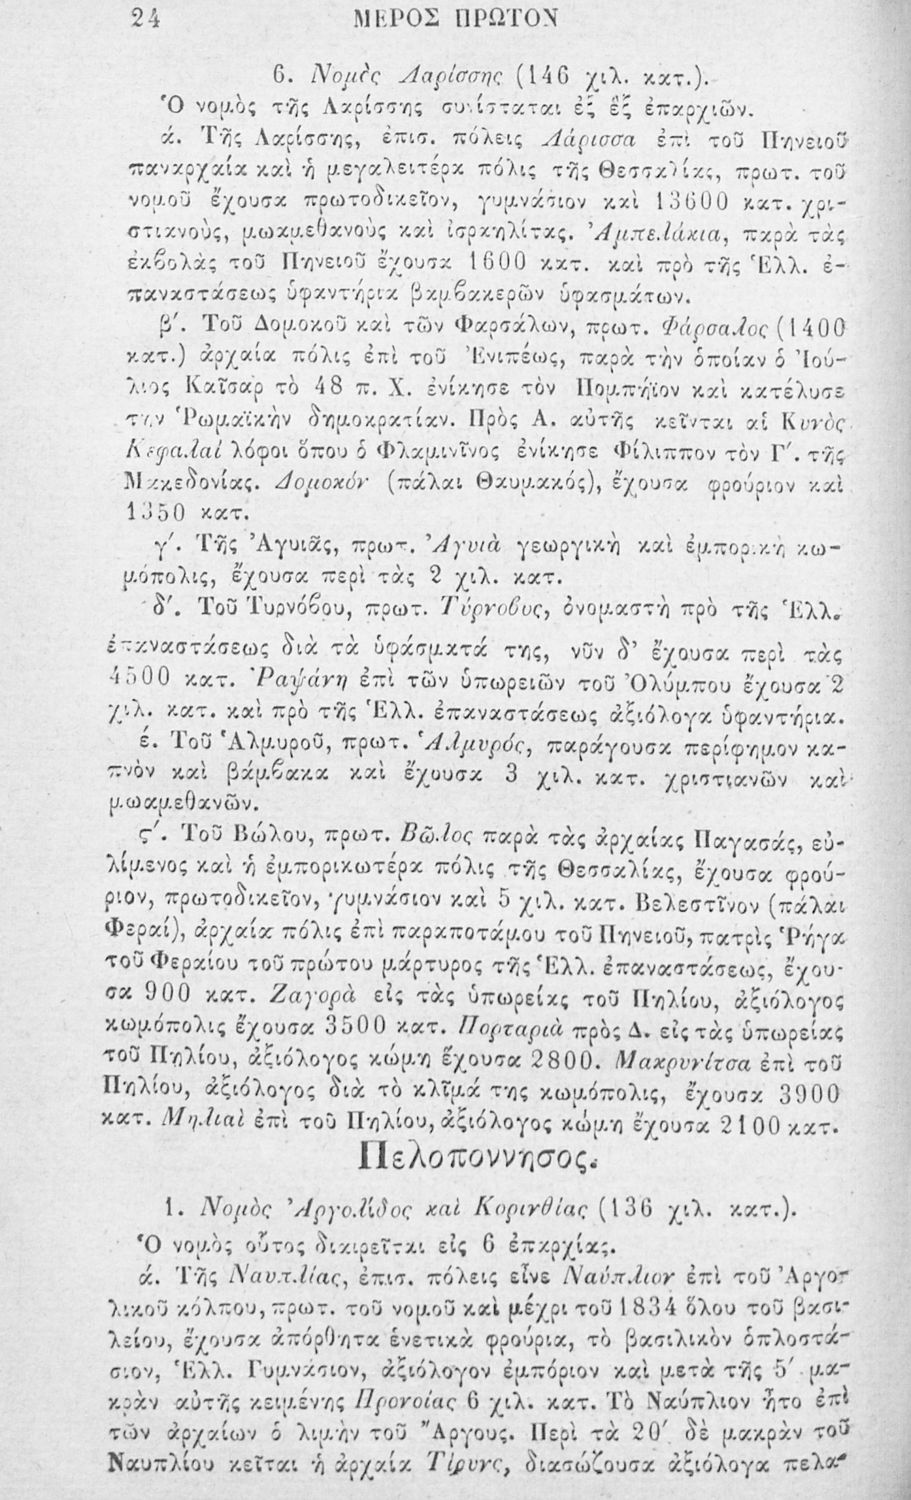 24 ΜΕΡΟΣ ΠΡΩΤΟΝ
6. Νομὸς Λαρίσσης (146 χιλ. κατ.).
Ὁ νομὸς τῆς Λαρίσσης συνίσταται ἐξ ἓξ ἐπαρχιῶν.
ά. Τῆς Λαρίσσης, ἐπισ. πόλεις Λάρισσα ἐπὶ τοῦ Πηνειοῦ
παναρχαία καὶ ἡ μεγαλειτέρα πόλις τῆς Θεσσαλίας, πρωτ. τοῦ
νομοῦ ἔχουσα πρωτοδικεῖον, γυμνάσιον καὶ 13600 κατ. χρι-
στιανοὺς, μωαμεθανοὺς καὶ ἰσραηλίτας. Ἀμπελάκια, παρὰ τὰς
ἐκβολὰς τοῦ Πηνειοῦ ἔχουσα 1600 κατ. καὶ πρὸ τῆς Ἑλλ. ἐ-
παναστάσεως ὑφαντήρια βαμβακερῶν ὑφασμάτων.
β΄. Τοῦ Δομοκοῦ καὶ τῶν Φαρσάλων, πρωτ. Φάρσαλος (1400
κατ.) ἀρχαία πόλις ἐπὶ τοῦ Ἐνιπέως, παρὰ τὴν ὁποίαν ὁ Ἰού-
λιος Καῖσαρ τὸ 48 π. Χ. ἐνίκησε τὸν Πομπήϊον καὶ κατέλυσε
τὴν Ῥωμαϊκὴν δημοκρατίαν. Πρὸς Α. αὐτῆς κεῖνται αἱ Κυνὸς
Κεφαλαὶ λόφοι ὅπου ὁ Φλαμινῖνος ἐνίκησε Φίλιππον τὸν Γ΄. τῆς
Μακεδονίας. Δομοκόν (πάλαι Θαυμακός), ἔχουσα φρούριον καὶ
1350 κατ.
γ΄. Τῆς Ἀγυιᾶς, πρωτ. Ἀγυιὰ γεωργικὴ καὶ ἐμπορικὴ κω-
μόπολις, ἔχουσα περὶ τὰς 2 χιλ. κατ.
δ΄. Τοῦ Τυρνόβου, πρωτ. Τύρνοβος, ὀνομαστὴ πρὸ τῆς Ἑλλ.
ἐπαναστάσεως διὰ τὰ ὑφάσματά της, νῦν δ' ἔχουσα περὶ τὰς
4500 κατ. Ῥαψάνη ἐπὶ τῶν ὑπωρειῶν τοῦ Ὀλύμπου ἔχουσα 2
χιλ. κατ. καὶ πρὸ τῆς Ἑλλ. ἐπαναστάσεως ἀξιόλογα ὑφαντήρια.
έ. Τοῦ Ἁλμυροῦ, πρωτ. Ἁλμυρός, παράγουσα περίφημον κα-
πνὸν καὶ βάμβακα καὶ ἔχουσα 3 χιλ. κατ. χριστιανῶν καὶ
μωαμεθανῶν.
ς΄. Τοῦ Βώλου, πρωτ. Βῶλος παρὰ τὰς ἀρχαίας Παγασάς, εὐ-
λίμενος καὶ ἡ ἐμπορικωτέρα πόλις τῆς Θεσσαλίας, ἔχουσα φρού-
ριον, πρωτοδικεῖον, γυμνάσιον καὶ 5 χιλ. κατ. Βελεστῖνον (πάλαι
Φεραί), ἀρχαία πόλις ἐπὶ παραποτάμου τοῦ Πηνειοῦ, πατρὶς Ῥήγα
τοῦ Φεραίου τοῦ πρώτου μάρτυρος τῆς Ἑλλ. ἐπαναστάσεως, ἔχου-
σα 900 κατ. Ζαγορὰ εἰς τὰς ὑπωρείας τοῦ Πηλίου, ἀξιόλογος
κωμόπολις ἔχουσα 3500 κατ. Πορταριὰ πρὸς Δ. εἰς τὰς ὑπωρείας
τοῦ Πηλίου, ἀξιόλογος κώμη ἔχουσα 2800. Μακρυνίτσα ἐπὶ τοῦ
Πηλίου, ἀξιόλογος διὰ τὸ κλῖμά της κωμόπολις, ἔχουσα 3900
κατ. Μηλιαὶ ἐπὶ τοῦ Πηλίου, ἀξιόλογος κώμη ἔχουσα 2100 κατ.
Πελοποννησος.
1. Νομὸς Ἀργολίδος καὶ Κορινθίας (136 χιλ. κατ.).
Ὁ νομὸς οὗτος διαιρεῖται εἰς 6 ἐπαρχίας.
ά. Τῆς Ναυπλίας, ἐπισ. πόλεις εἶνε Ναύπλιον ἐπὶ τοῦ Ἀργο-
λικοῦ κόλπου, πρωτ. τοῦ νομοῦ καὶ μέχρι τοῦ 1834 ὅλου τοῦ βασι-
λείου, ἔχουσα ἀπόρθητα ἑνετικὰ φρούρια, τὸ βασιλικὸν ὁπλοστά-
σιον, Ἑλλ. Γυμνάσιον, ἀξιόλογον ἐμπόριον καὶ μετὰ τῆς 5΄ μα-
κρὰν αὐτῆς κειμένης Προνοίας 6 χιλ. κατ. Τὸ Ναύπλιον ἦτο ἐπὶ
τῶν ἀρχαίων ὁ λιμὴν τοῦ Ἄργους. Περὶ τὰ 20΄ δὲ μακρὰν τοῦ
Ναυπλίου κεῖται ἡ ἀρχαία Τίρυνς, διασώζουσα ἀξιόλογα πελα-